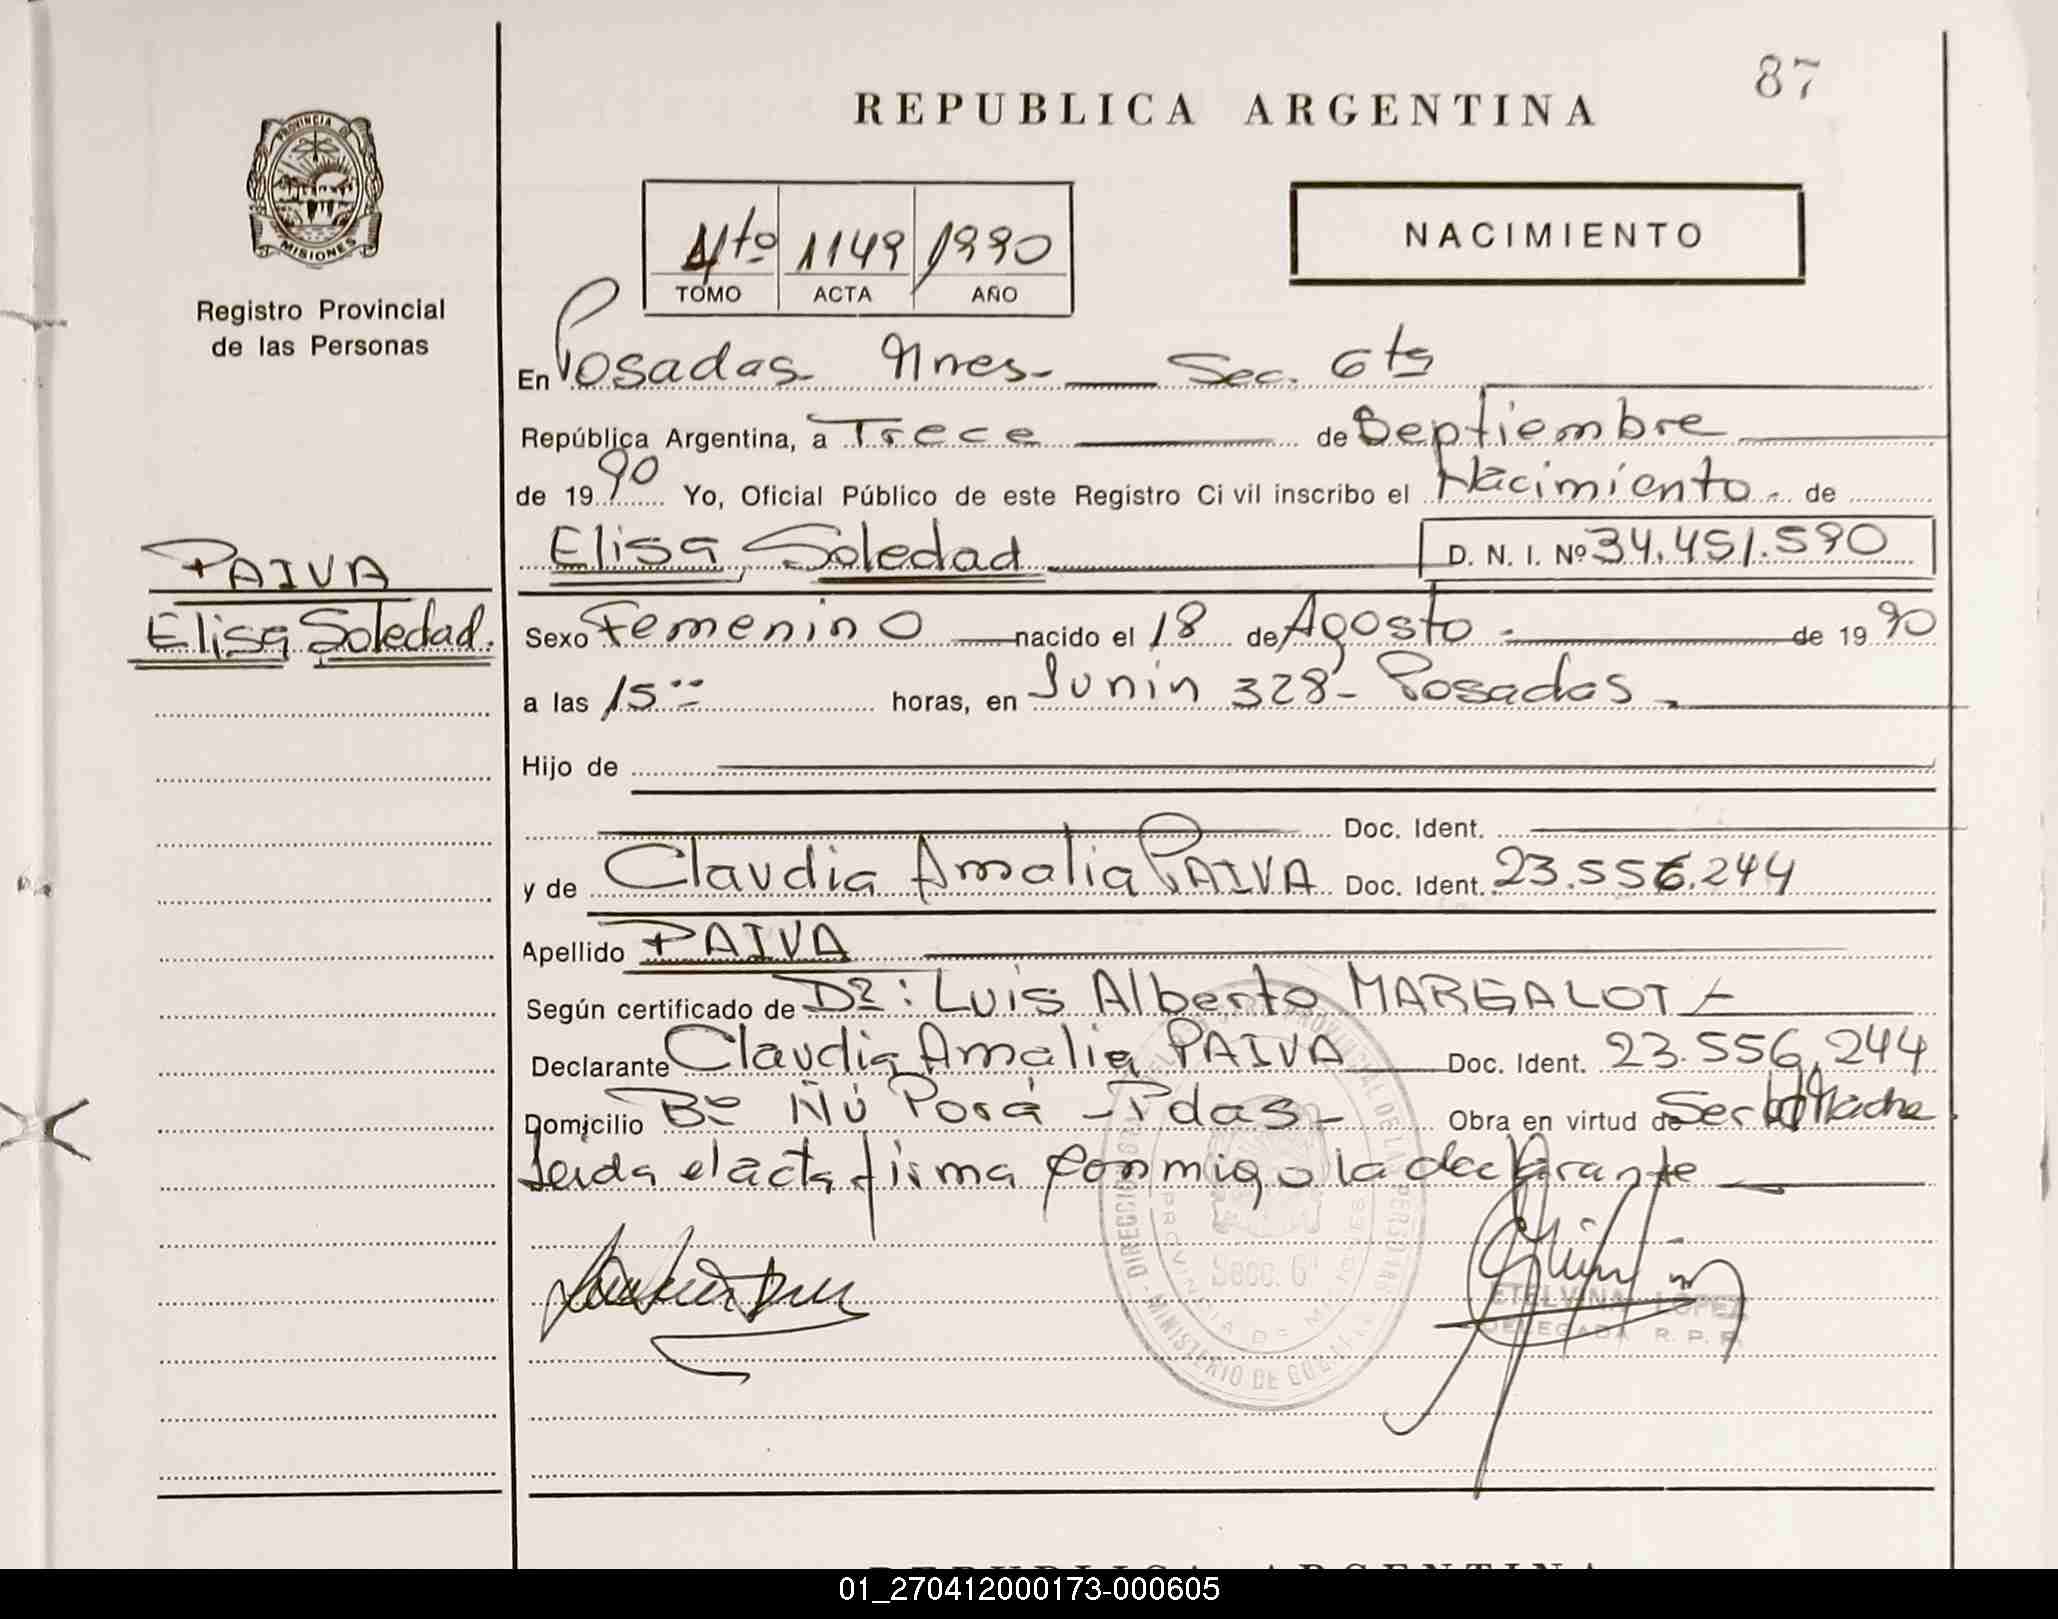 87
REPUBLICA ARGENTINA
PROVINCIA DE
MISIONES
Registro Provincial
de las Personas
4to 1149 1990
TOMO ACTA AÑO
NACIMIENTO
En Posadas Mnes- Sec. 6ta
República Argentina, a Trece de Septiembre
de 1990 Yo, Oficial Público de este Registro Ci vil inscribo el Nacimiento. de
Elisa Soledad D. N. I. Nº 34.451.590
PAIVA
Elisa Soledad.
Sexo Femenino nacido el 18 de Agosto - de 19 90
a las 15 horas, en Junin 328- Posadas
Hijo de
Doc. Ident.
y de Claudia Amalia PAIVA Doc. Ident. 23.556.244
Apellido PAIVA
Según certificado de Dr: Luis Alberto MARGALOT
Declarante Claudia Amalia PAIVA Doc. Ident. 23.556.244
Domicilio Bº Ñú Porá - Pdas- Obra en virtud de Ser Madre
Leida el acta firma conmigo la declarante
Secc. 6ª
PROVINCIA DE MISIONES
ETELVINA LOPEZ
DELEGADA R. P. P.
REPUBLICA ARGENTINA
01_270412000173-000605